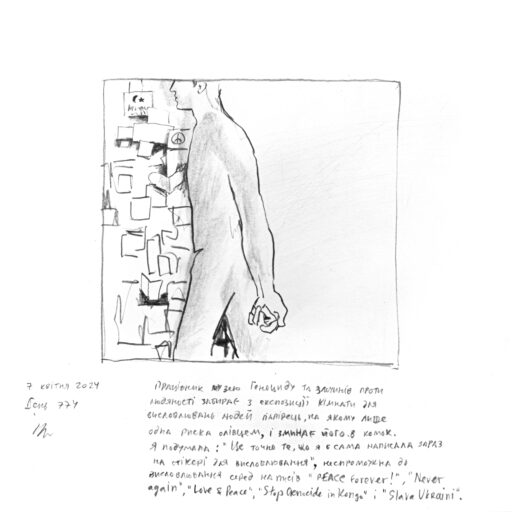 7 квітня 2024
День 774
Працівник музею Геноциду та злочинів проти
людяності забирає з експозиції кімнати для
висловлювань людей папірець, на якому лише
одна риска олівцем, і зминає його в комок.
Я подумала: "Це точно те, що я б сама написала зараз
на стікері для висловлювання", неспроможна до
висловлювання серед написів "PEACE Forever!", "Never
again", "Love & Peace", "Stop Genocide in Kongo" і "Slava Ukraini".